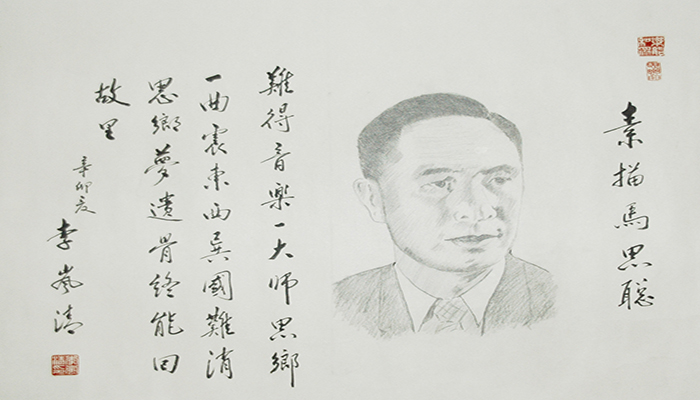 素描馬思聪
難得音樂一大师思鄉
一曲震東西異國難消
思鄉夢遺骨終能回
故里
辛卯夏
李嵐清